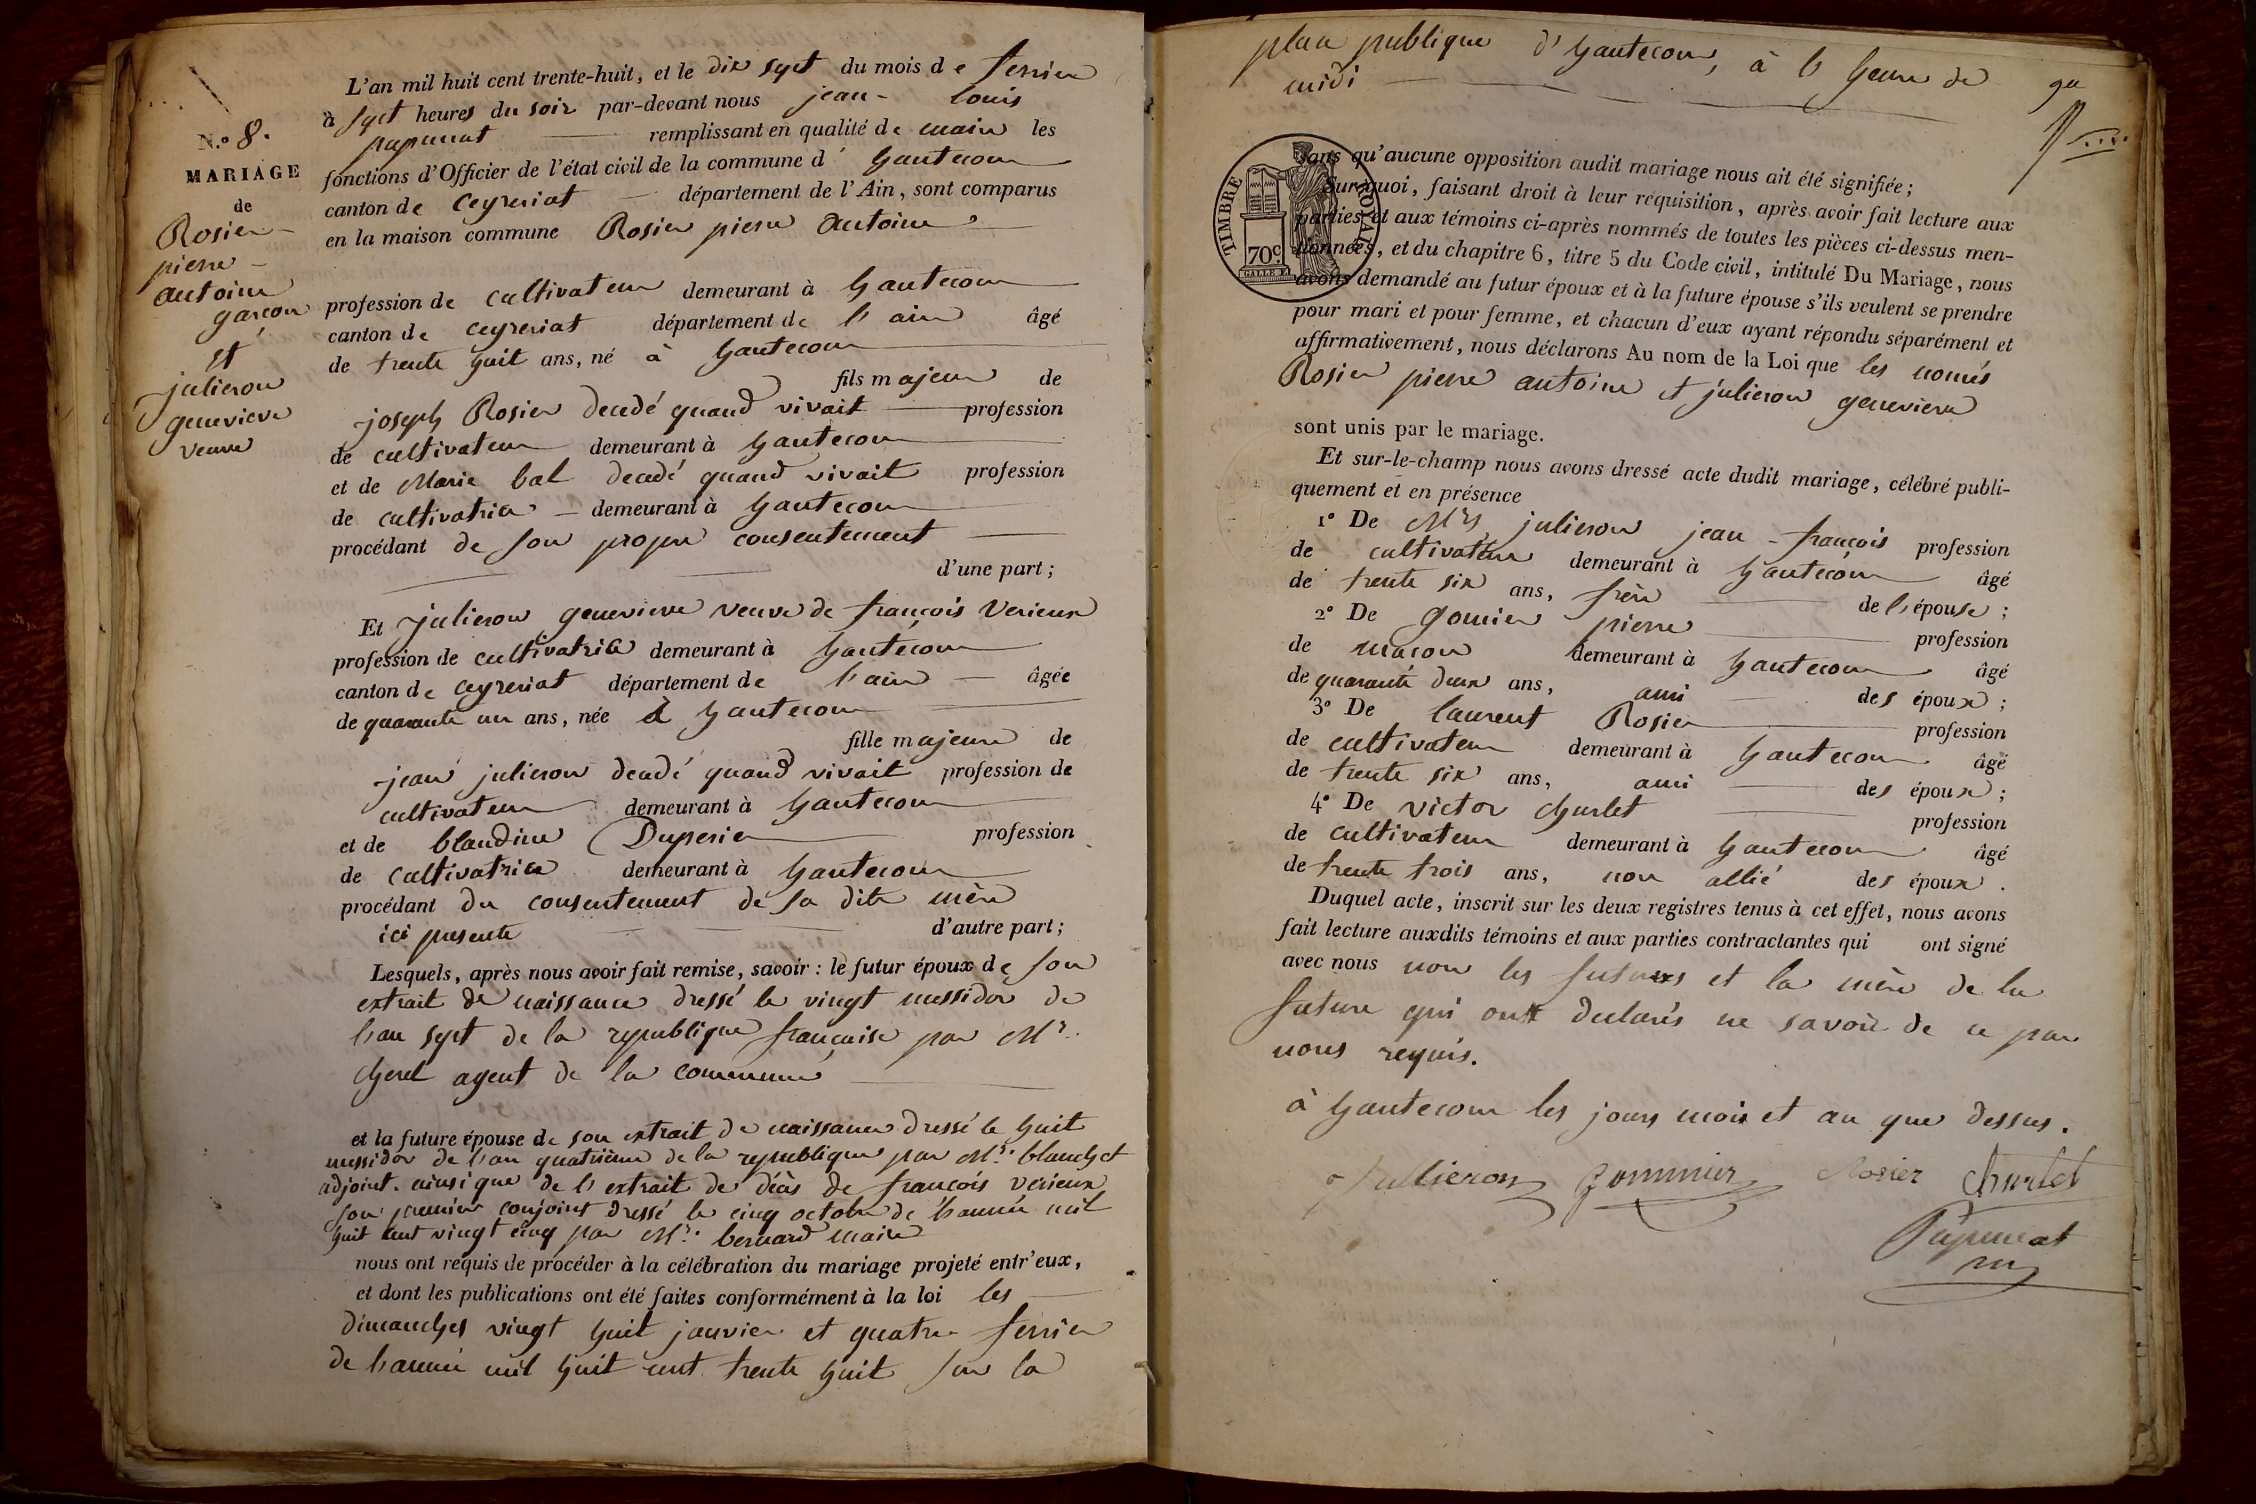 N.º 8.
MARIAGE
de
Rosier
pierre
antoine
garçon
et
julieron
genevieve
veuve
L'an mil huit cent trente-huit, et le dix sept du mois de fevrier
à sept heures du soir par-devant nous jean-louis
papunat remplissant en qualité de maire les
fonctions d'Officier de l'état civil de la commune d'hautecour
canton de ceyzeriat département de l'Ain, sont comparus
en la maison commune Rosier pierre antoine
profession de cultivateur demeurant à hautecour
canton de ceyzeriat département de l'ain âgé
de trente huit ans, né à hautecour
fils majeur de
joseph Rosier decedé quand vivait profession
de cultivateur demeurant à hautecour
et de Marie bal decedé quand vivait profession
de cultivatrice demeurant à hautecour
procédant de son propre consentement
d'une part ;
Et julieron genevieve veuve de françois Verieux
profession de cultivatrice demeurant à hautecour
canton de ceyzeriat département de l'ain âgée
de quarante un ans, née à hautecour
fille majeure de
jean julieron decedé quand vivait profession de
cultivateur demeurant à hautecour
et de blandine Duperier profession
de cultivatrice demeurant à hautecour
procédant du consentement de sa dite mère
ici presente d'autre part ;
Lesquels, après nous avoir fait remise, savoir : le futur époux de son
extrait de naissance dressé le vingt messidor de
l'an sept de la republique française par Mr.
cherel agent de la commune
et la future épouse de son extrait de naissance dressé le huit
messidor de l'an quatrième de la republique par Mr. blanchet
adjoint. ainsi que de l'extrait de décès de françois verieux
son premier conjoint dressé le cinq octobre de l'année mil
huit cent vingt cinq par Mr. bernard maire
nous ont requis de procéder à la célébration du mariage projeté entr'eux,
et dont les publications ont été faites conformément à la loi les
dimanches vingt huit janvier et quatre fevrier
de l'année mil huit cent trente huit sur la
place publique d'hautecour, à l'heure de
midi
TIMBRE ROYAL
70c
sans qu'aucune opposition audit mariage nous ait été signifiée ;
Sur quoi, faisant droit à leur réquisition, après avoir fait lecture aux
parties et aux témoins ci-après nommés de toutes les pièces ci-dessus men-
tionnées, et du chapitre 6, titre 5 du Code civil, intitulé Du Mariage, nous
avons demandé au futur époux et à la future épouse s'ils veulent se prendre
pour mari et pour femme, et chacun d'eux ayant répondu séparément et
affirmativement, nous déclarons Au nom de la Loi que les només
Rosier pierre antoine et julieron genevieve
sont unis par le mariage.
Et sur-le-champ nous avons dressé acte dudit mariage, célébré publi-
quement et en présence
1º De Mrs julieron jean-françois profession
de cultivateur demeurant à hautecour âgé
de trente six ans, frère de l'épouse ;
2º De gomier pierre profession
de maçon demeurant à hautecour âgé
de quarante deux ans, ami des époux ;
3º De laurent Rosier profession
de cultivateur demeurant à hautecour âgé
de trente six ans, ami des époux ;
4º De victor churlet profession
de cultivateur demeurant à hautecour âgé
de trente trois ans, non allié des époux.
Duquel acte, inscrit sur les deux registres tenus à cet effet, nous avons
fait lecture auxdits témoins et aux parties contractantes qui ont signé
avec nous non les futures et la mère de la
future qui ont declarés ne savoir de ce par
nous requis.
à hautecour les jours mois et an que dessus.
Jullieron gommier Rosier Churlet
Papunat